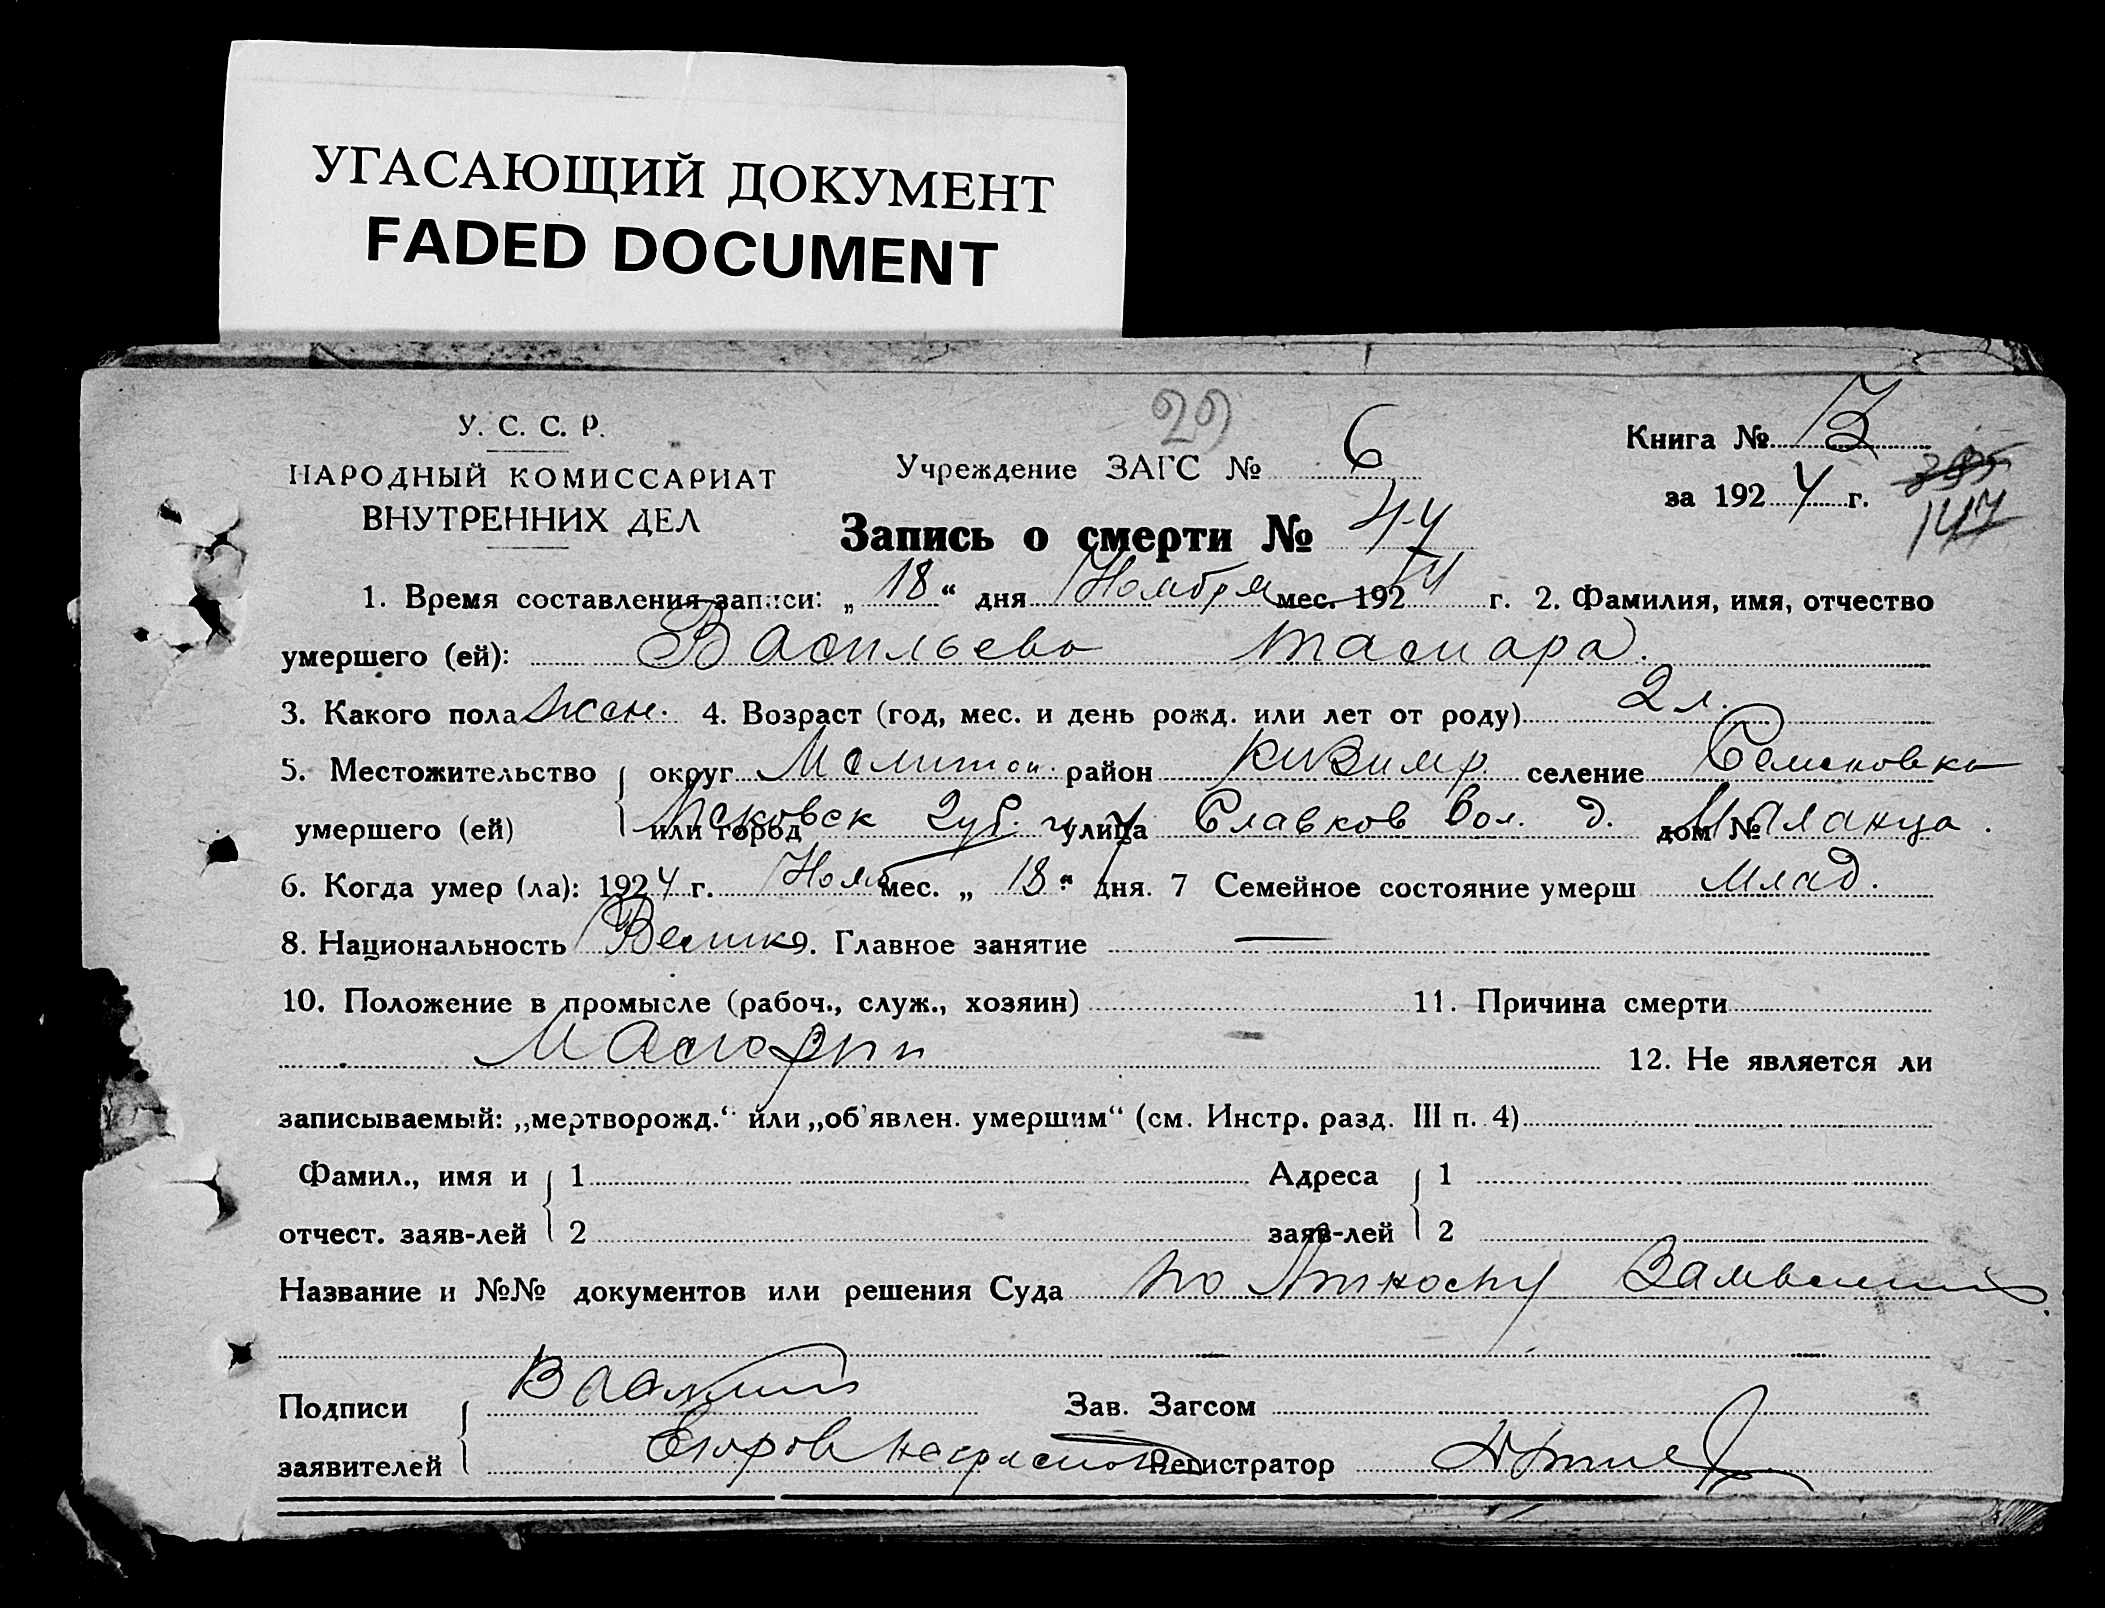 УГАСАЮЩИЙ ДОКУМЕНТ
FADED DOCUMENT
У. С. С. Р.
НАРОДНЫЙ КОМИССАРИАТ
ВНУТРЕННИХ ДЕЛ
29
Учреждение ЗАГС № 6
Книга №
за 1924 г.
147
Запись о смерти № 44
1. Время составления записи: „ 18 “ дня Ноября мес. 1924 г. 2. Фамилия, имя, отчество
умершего (ей): Васильева Тамара.
3. Какого пола жен. 4. Возраст (год, мес. и день рожд. или лет от роду) 2 л.
5. Местожительство округ Мелитоп. район селение Семеновка
умершего (ей) или город Псковск Губ. улица Славков вол. д. дом №
6. Когда умер (ла): 1924 г. Нояб мес. „ 18 “ дня. 7 Семейное состояние умерш млад.
8. Национальность Велик 9. Главное занятие —
10. Положение в промысле (рабоч., служ., хозяин) 11. Причина смерти
12. Не является ли
записываемый: „мертворожд.“ или „об'явлен. умершим“ (см. Инстр. разд. III п. 4)
Фамил., имя и 1 Адреса 1
отчест. заяв-лей 2 заяв-лей 2
Название и №№ документов или решения Суда по
Подписи Зав. Загсом
заявителей Регистратор